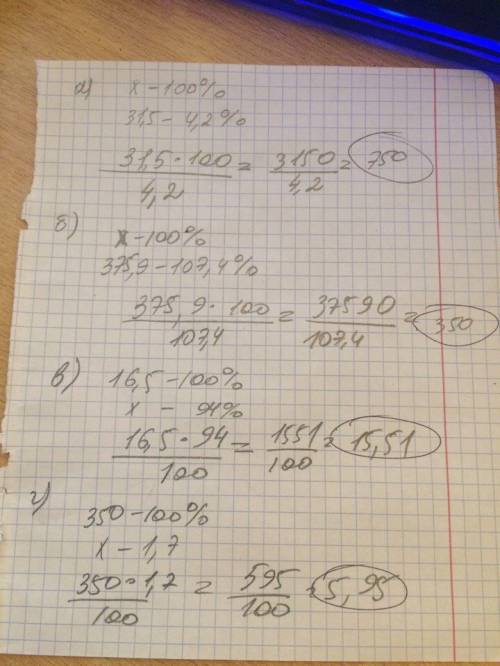 а) x – 100%
31,5 – 4,2%
31,5 · 100 / 4,2 = 3150 / 4,2 = 750
б) x – 100%
375,9 – 107,4%
375,9 · 100 / 107,4 = 37590 / 107,4 = 350
в) 16,5 – 100%
x – 94%
16,5 · 94 / 100 = 1551 / 100 = 15,51
г) 350 – 100%
x – 1,7
350 · 1,7 / 100 = 595 / 100 = 5,95